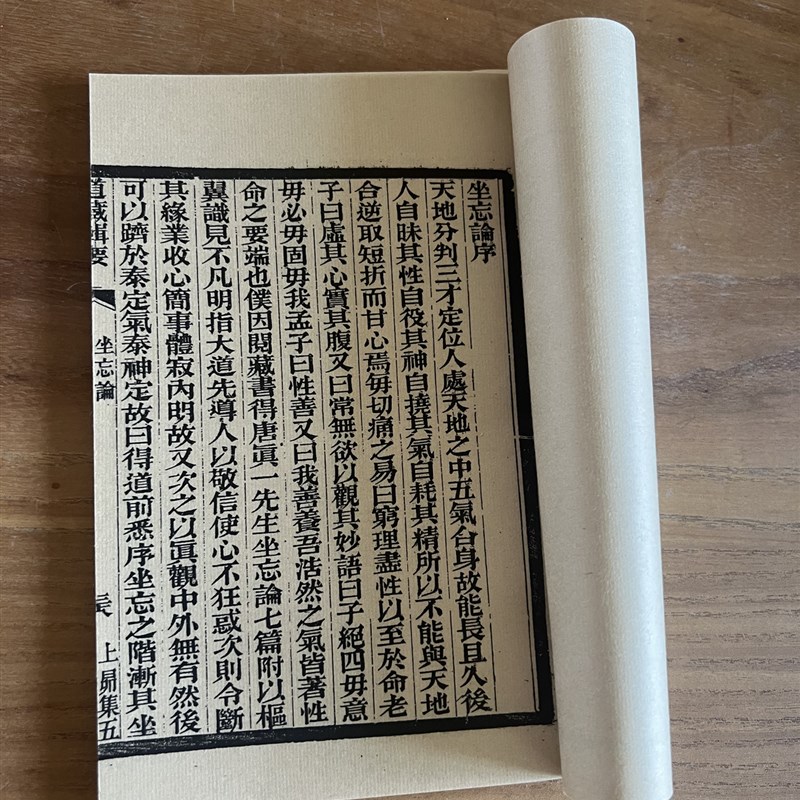 坐忘論序
天地分判三才定位人處天地之中五氣合身故能長且久後
人自昧其性自役其神自撓其氣自耗其精所以不能與天地
合逆取短折而甘心焉每切痛之易曰窮理盡性以至於命老
子曰虛其心實其腹又曰常無欲以觀其妙語曰子絕四毋意
毋必毋固毋我孟子曰性善又曰我善養吾浩然之氣皆著性
命之要端也僕因閱藏書得唐眞一先生坐忘論七篇附以樞
翼識見不凡明指大道先導人以敬信使心不狂惑次則令斷
其緣業收心簡事體寂內明故又次之以眞觀中外無有然後
可以躋於泰定氣泰神定故曰得道前悉序坐忘之階漸其坐
道藏輯要
坐忘論
上昴集五